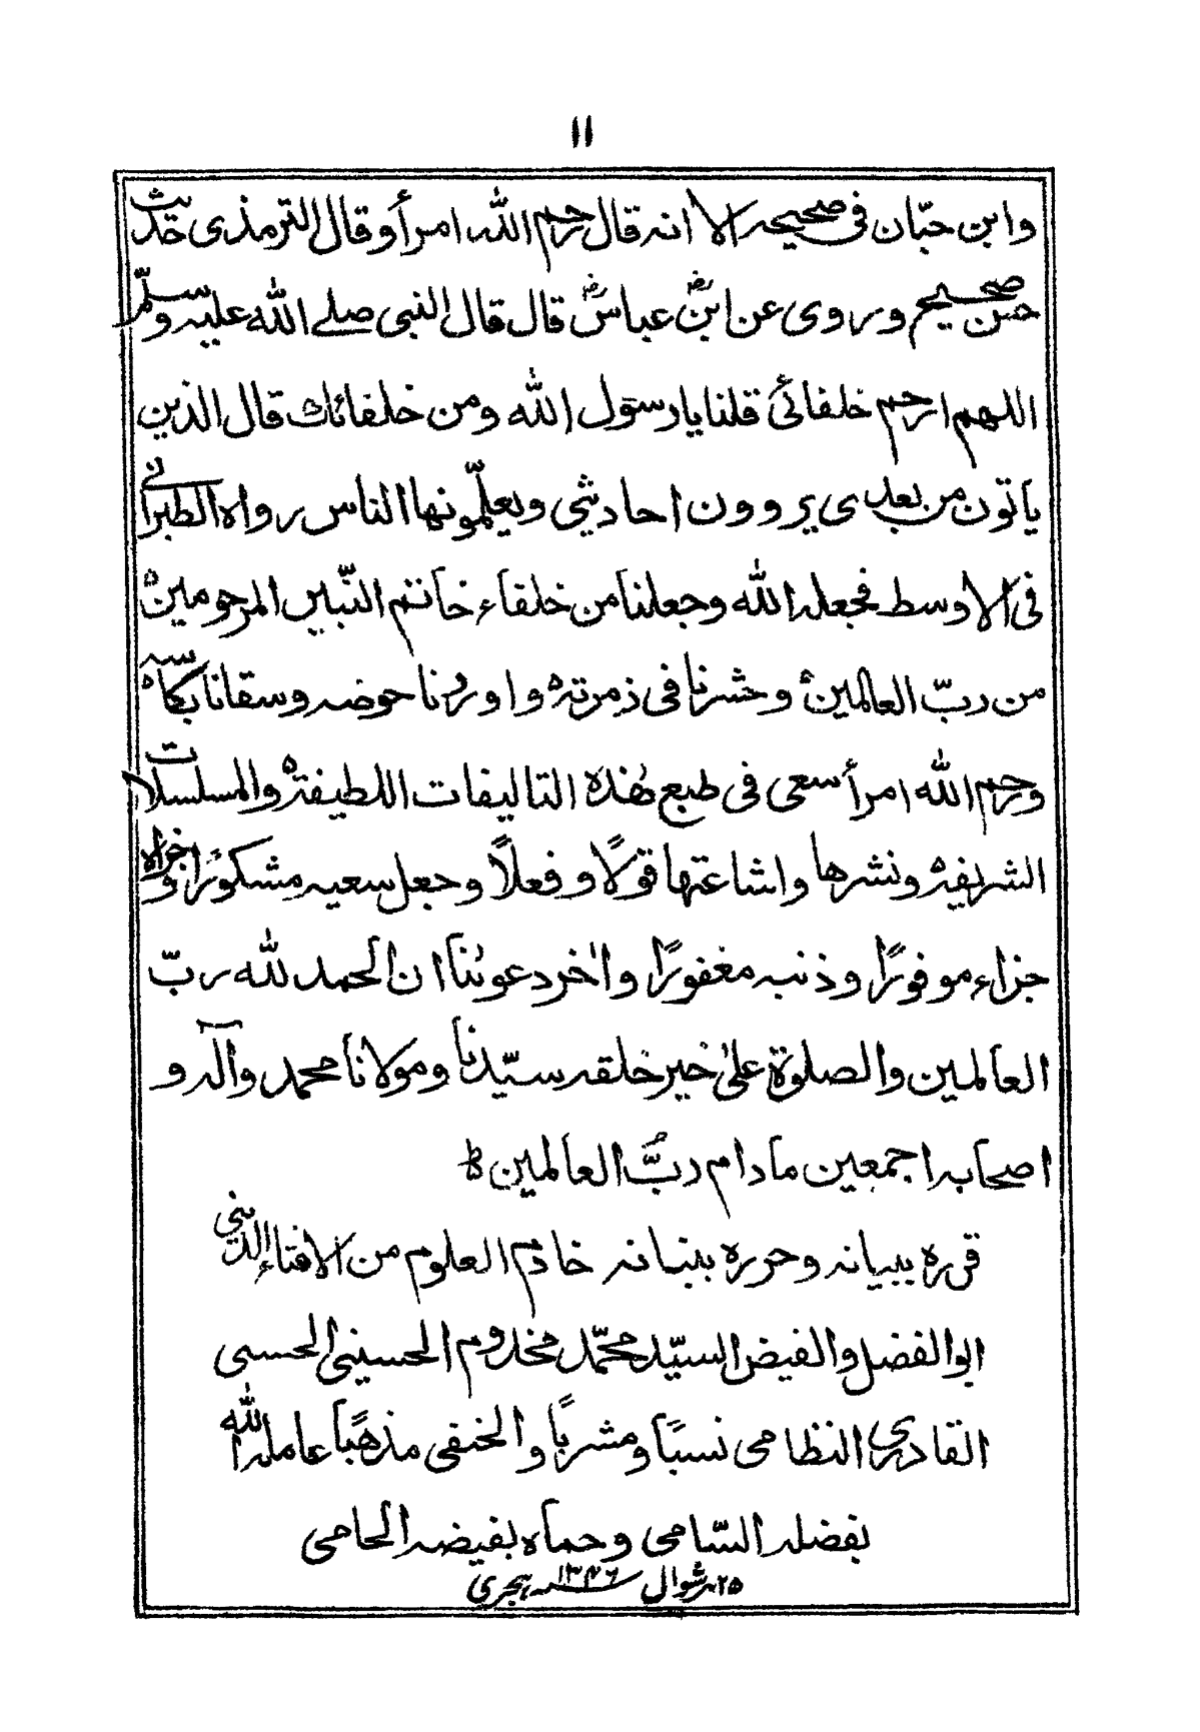 ١١
وابن حبّان فی صحیحہ الا انہ قال رحم اللہ امرأ وقال الترمذی حدیث
حسن صحیح وروی عن ابنؓ عباسؓ قال قال النبی صلے اللہ علیہ وسلّم
اللہم ارحم خلفائی قلنا یا رسول اللہ ومن خلفائك قال الذین
یاتون من بعدی یروون احادیثی ویعلّمونھا الناس رواہ الطبرانی
فی الاوسط فجعلہ اللہ وجعلنا من خلفاء خاتم النّبیین المرحومینؕ
من ربّ العالمینؕ وحشرنا فی زمرتہٖ واوردنا حوضہ وسقانا بکاسہٖ
ورحم اللہ امرأ سعی فی طبع ھٰذہ التالیفات اللطیفۃ والمسلسلات
الشریفۃ ونشرھا واشاعتھا قولًا وفعلًا وجعل سعیہ مشکورًا وجزاہ
جزاء موفورًا وذنبہ مغفورًا واٰخر دعوٰنا ان الحمد للہ ربّ
العالمین والصلوۃ علیٰ خیر خلقہ سیّدنا ومولانا محمد وآلہ و
اصحابہ اجمعین مادام ربُّ العالمین ؕ
قررہ ببیانہ وحررہ ببنانہ خادم العلوم من الافتاء الدینی
ابوالفضل والفیض السیّد محمّد مخدوم الحسینی الحسنی
القادری النظامی نسبًا ومشربًا والحنفی مذھبًا عاملہ اللہ
بفضلہ السّامی وحماہ بفیضہ الحامی
۲۵ شوال ۱۳۴۶ ہجری